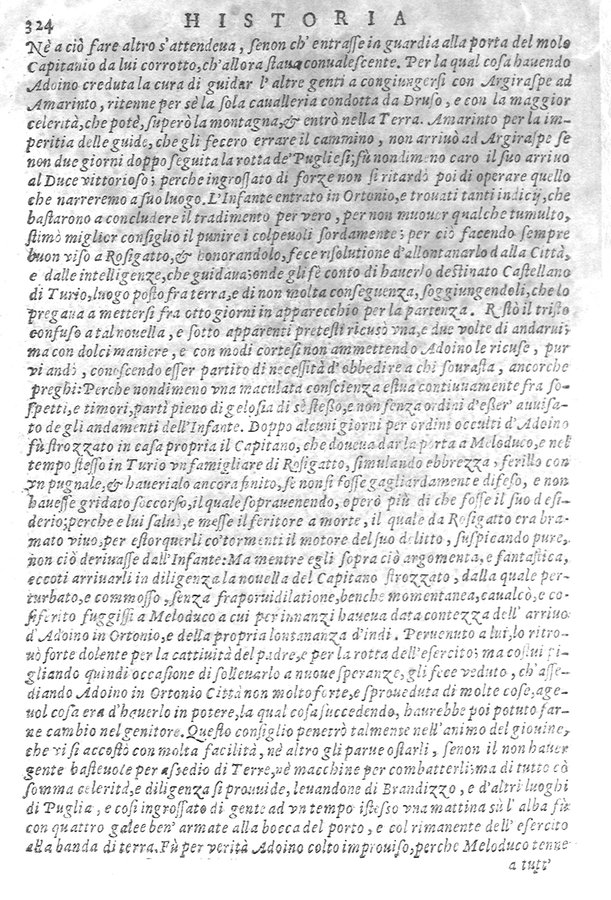 324 HISTORIA
Nè a ciò fare altro s'attendeua, senon ch'entrasse in guardia alla porta del molo
Capitanio da lui corrotto, ch'allora staua conualescente. Per la qual cosa hauendo
Adoino creduta la cura di guidar l'altre genti a congiungersi con Argiraspe ad
Amarinto, ritenne per sè la sola caualleria condotta da Druso, e con la maggior
celerità, che potè, superò la montagna, & entrò nella Terra. Amarinto per la im-
peritia delle guide, che gli fecero errare il cammino, non arriuò ad Argiraspe se
non due giorni doppo seguita la rotta de' Pugliesi; fù nondimeno caro il suo arriuo
al Duce vittorioso; perche ingrossato di forze non si ritardò poi di operare quello
che narreremo a suo luogo. L'Infante entrato in Ortonio, e trouati tanti indicij, che
bastarono a concludere il tradimento per vero, per non muouer qualche tumulto,
stimò miglior consiglio il punire i colpeuoli sordamente; per ciò facendo sempre
buon viso a Rosigatto, & honorandolo, fece risolutione d'allontanarlo dalla Città,
e dalle intelligenze, che guidaua; onde gli fè conto di hauerlo destinato Castellano
di Turio, luogo posto fra terra, e di non molta conseguenza, soggiungendoli, che lo
pregaua a mettersi fra otto giorni in apparecchio per la partenza. Restò il tristo
confuso a tal nouella, e sotto apparenti pretesti ricusò vna, e due volte di andarui;
ma con dolci maniere, e con modi cortesi non ammettendo Adoino le ricuse, pur
vi andò, conoscendo esser partito di necessità d'obbedire a chi sourasta, ancorche
preghi: Perche nondimeno vna maculata conscienza estua contiuuamente fra so-
spetti, e timori, partì pieno di gelosia di sè stesso, e non senza ordini d'esser' auuisa-
to degli andamenti dell'Infante. Doppo alcuni giorni per ordini occulti d'Adoino
fù strozzato in casa propria il Capitano, che doueua dar la porta a Meloduco, e nel
tempo stesso in Turio vn famigliare di Rosigatto, simulando ebbrezza, ferillo con
vn pugnale, & hauerialo ancora finito, se non si fosse gagliardamente difeso, e non
hauesse gridato soccorso, il quale soprauenendo, operò più di che fosse il suo desi-
derio; perche e lui saluò, e messe il feritore a morte, il quale da Rosigatto era bra-
mato viuo, per estorquerli co' tormenti il motore del suo delitto, suspicando pure,
non ciò deriuasse dall'Infante: Ma mentre egli sopra ciò argomenta, e fantastica,
eccoti arriuarli in diligenza la nouella del Capitano strozzato, dalla quale per-
turbato, e commosso, senza fraporui dilatione, benche momentanea, caualcò, e co-
sì ferito fuggissi a Meloduco a cui per innanzi haueua data contezza dell' arriuo
d'Adoino in Ortonio, e della propria lontananza d'indi. Peruenuto a lui, lo ritro-
uò forte dolente per la cattiuità del padre, e per la rotta dell'esercito; ma costui pi-
gliando quindi occasione di solleuarlo a nuoue speranze, gli fece veduto, ch'asse-
diando Adoino in Ortonio Città non molto forte, e sproueduta di molte cose, age-
uol cosa era d'hauerlo in potere, la qual cosa succedendo, haurebbe poi potuto far-
ne cambio nel genitore. Questo consiglio penetrò talmente nell'animo del giouine,
che vi si accostò con molta facilità, nè altro gli parue ostarli, senon il non hauer
gente basteuole per assedio di Terre, nè macchine per combatterli; ma di tutto cò
somma celerità, e diligenza si prouuide, leuandone di Brandizzo, e d'altri luoghi
di Puglia, e così ingrossato di gente ad vn tempo istesso vna mattina sù l'alba fù
con quattro galee ben' armate alla bocca del porto, e col rimanente dell' esercito
alla banda di terra. Fù per verità Adoino colto improuiso, perche Meloduco tenne
a tutt'